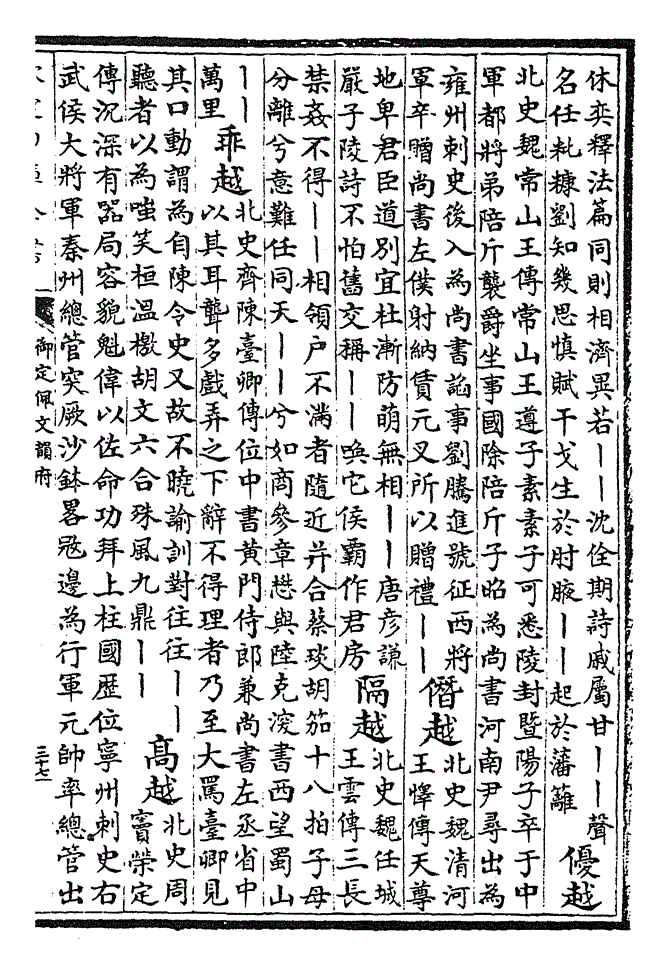 休奕釋法篇同則相濟異若——沈佺期詩戚屬甘——聲
名任粃糠劉知幾思慎賦干戈生於肘腋——起於藩籬
優越
北史魏常山王傳常山王遵子素素子可悉陵封暨陽子卒于中
軍都將弟陪斤襲爵坐事國除陪斤子昭為尚書河南尹尋出為
雍州刺史後入為尚書諂事劉騰進號征西將
軍卒贈尚書左僕射納賃元叉所以贈禮——
僭越
北史魏清河
王懌傳天尊
地卑君臣道別宜杜漸防萌無相——唐彦謙
嚴子陵詩不怕舊交稱——喚它侯霸作君房
隔越
北史魏任城
王雲傳三長
禁姦不得——相領户不滿者隨近并合蔡琰胡笳十八拍子母
分離兮意難任同天——兮如商參章懋與陸克深書西望蜀山
——
萬里
乖越
北史齊陳臺卿傳位中書黄門侍郎兼尚書左丞省中
以其耳聾多戲弄之下辭不得理者乃至大罵臺卿見
其口動謂為自陳令史又故不曉諭訓對往往——
聽者以為嗤笑桓溫檄胡文六合殊風九鼎——
高越
北史周
竇榮定
傳沉深有器局容貌魁偉以佐命功拜上柱國歴位寧州刺史右
武侯大將軍秦州總管突厥沙鉢畧冦邊為行軍元帥率總管出
御定佩文韻府
三十七